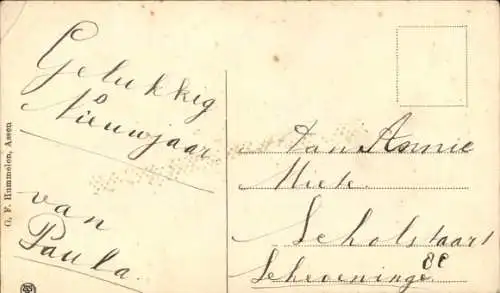 Gelukkig
Nieuwjaar
van
Paula.
G. F. Hummelen, Assen
Van Annie
Miete.
Scholstaart
80
Scheveninge